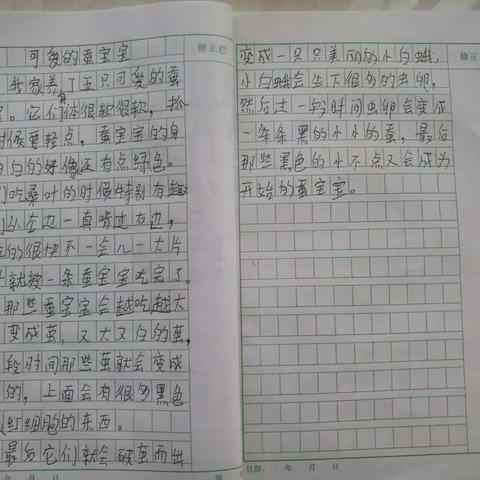 可爱的蚕宝宝
修正栏
我家养了五只可爱的蚕
。它们身体很软很软，抓
时候要轻点，蚕宝宝的身
白白的好像还有点绿色。
们吃桑叶的时候特别有趣
从左边一真啃过右边，
的很快不一会儿一大片
就被一条蚕宝宝吃完了。
那些蚕宝宝会越吃越大
变成茧，又大又白的茧，
段时间那些茧就会变成
的，上面会有很多黑色
红细胞的东西。
最后它们就会破茧而出
年 月 日
变成一只只美丽的小白蛾，
小白蛾会生下很多的虫卵，
然后过一段时间虫卵会变成
一条条黑的小小的蚕，最后
那些黑色的小不点又会成为
开始的蚕宝宝。
修正
日期： 年 月 日